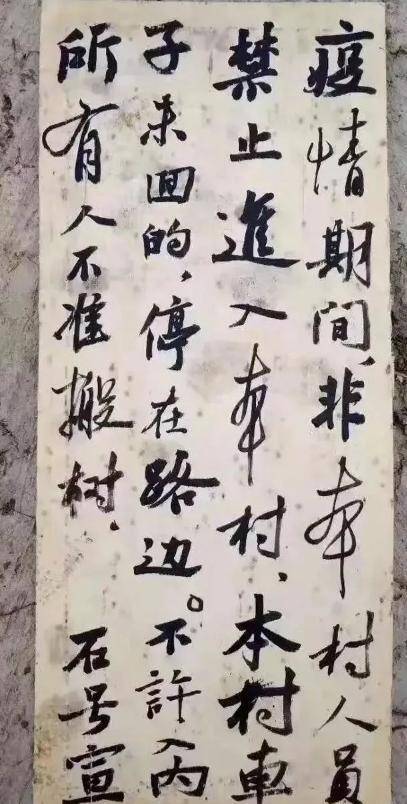 疫情期间，非本村人员
禁止進入本村、本村車
子未回的，停在路边。不許入内
所有人不准搬树．
石号宣